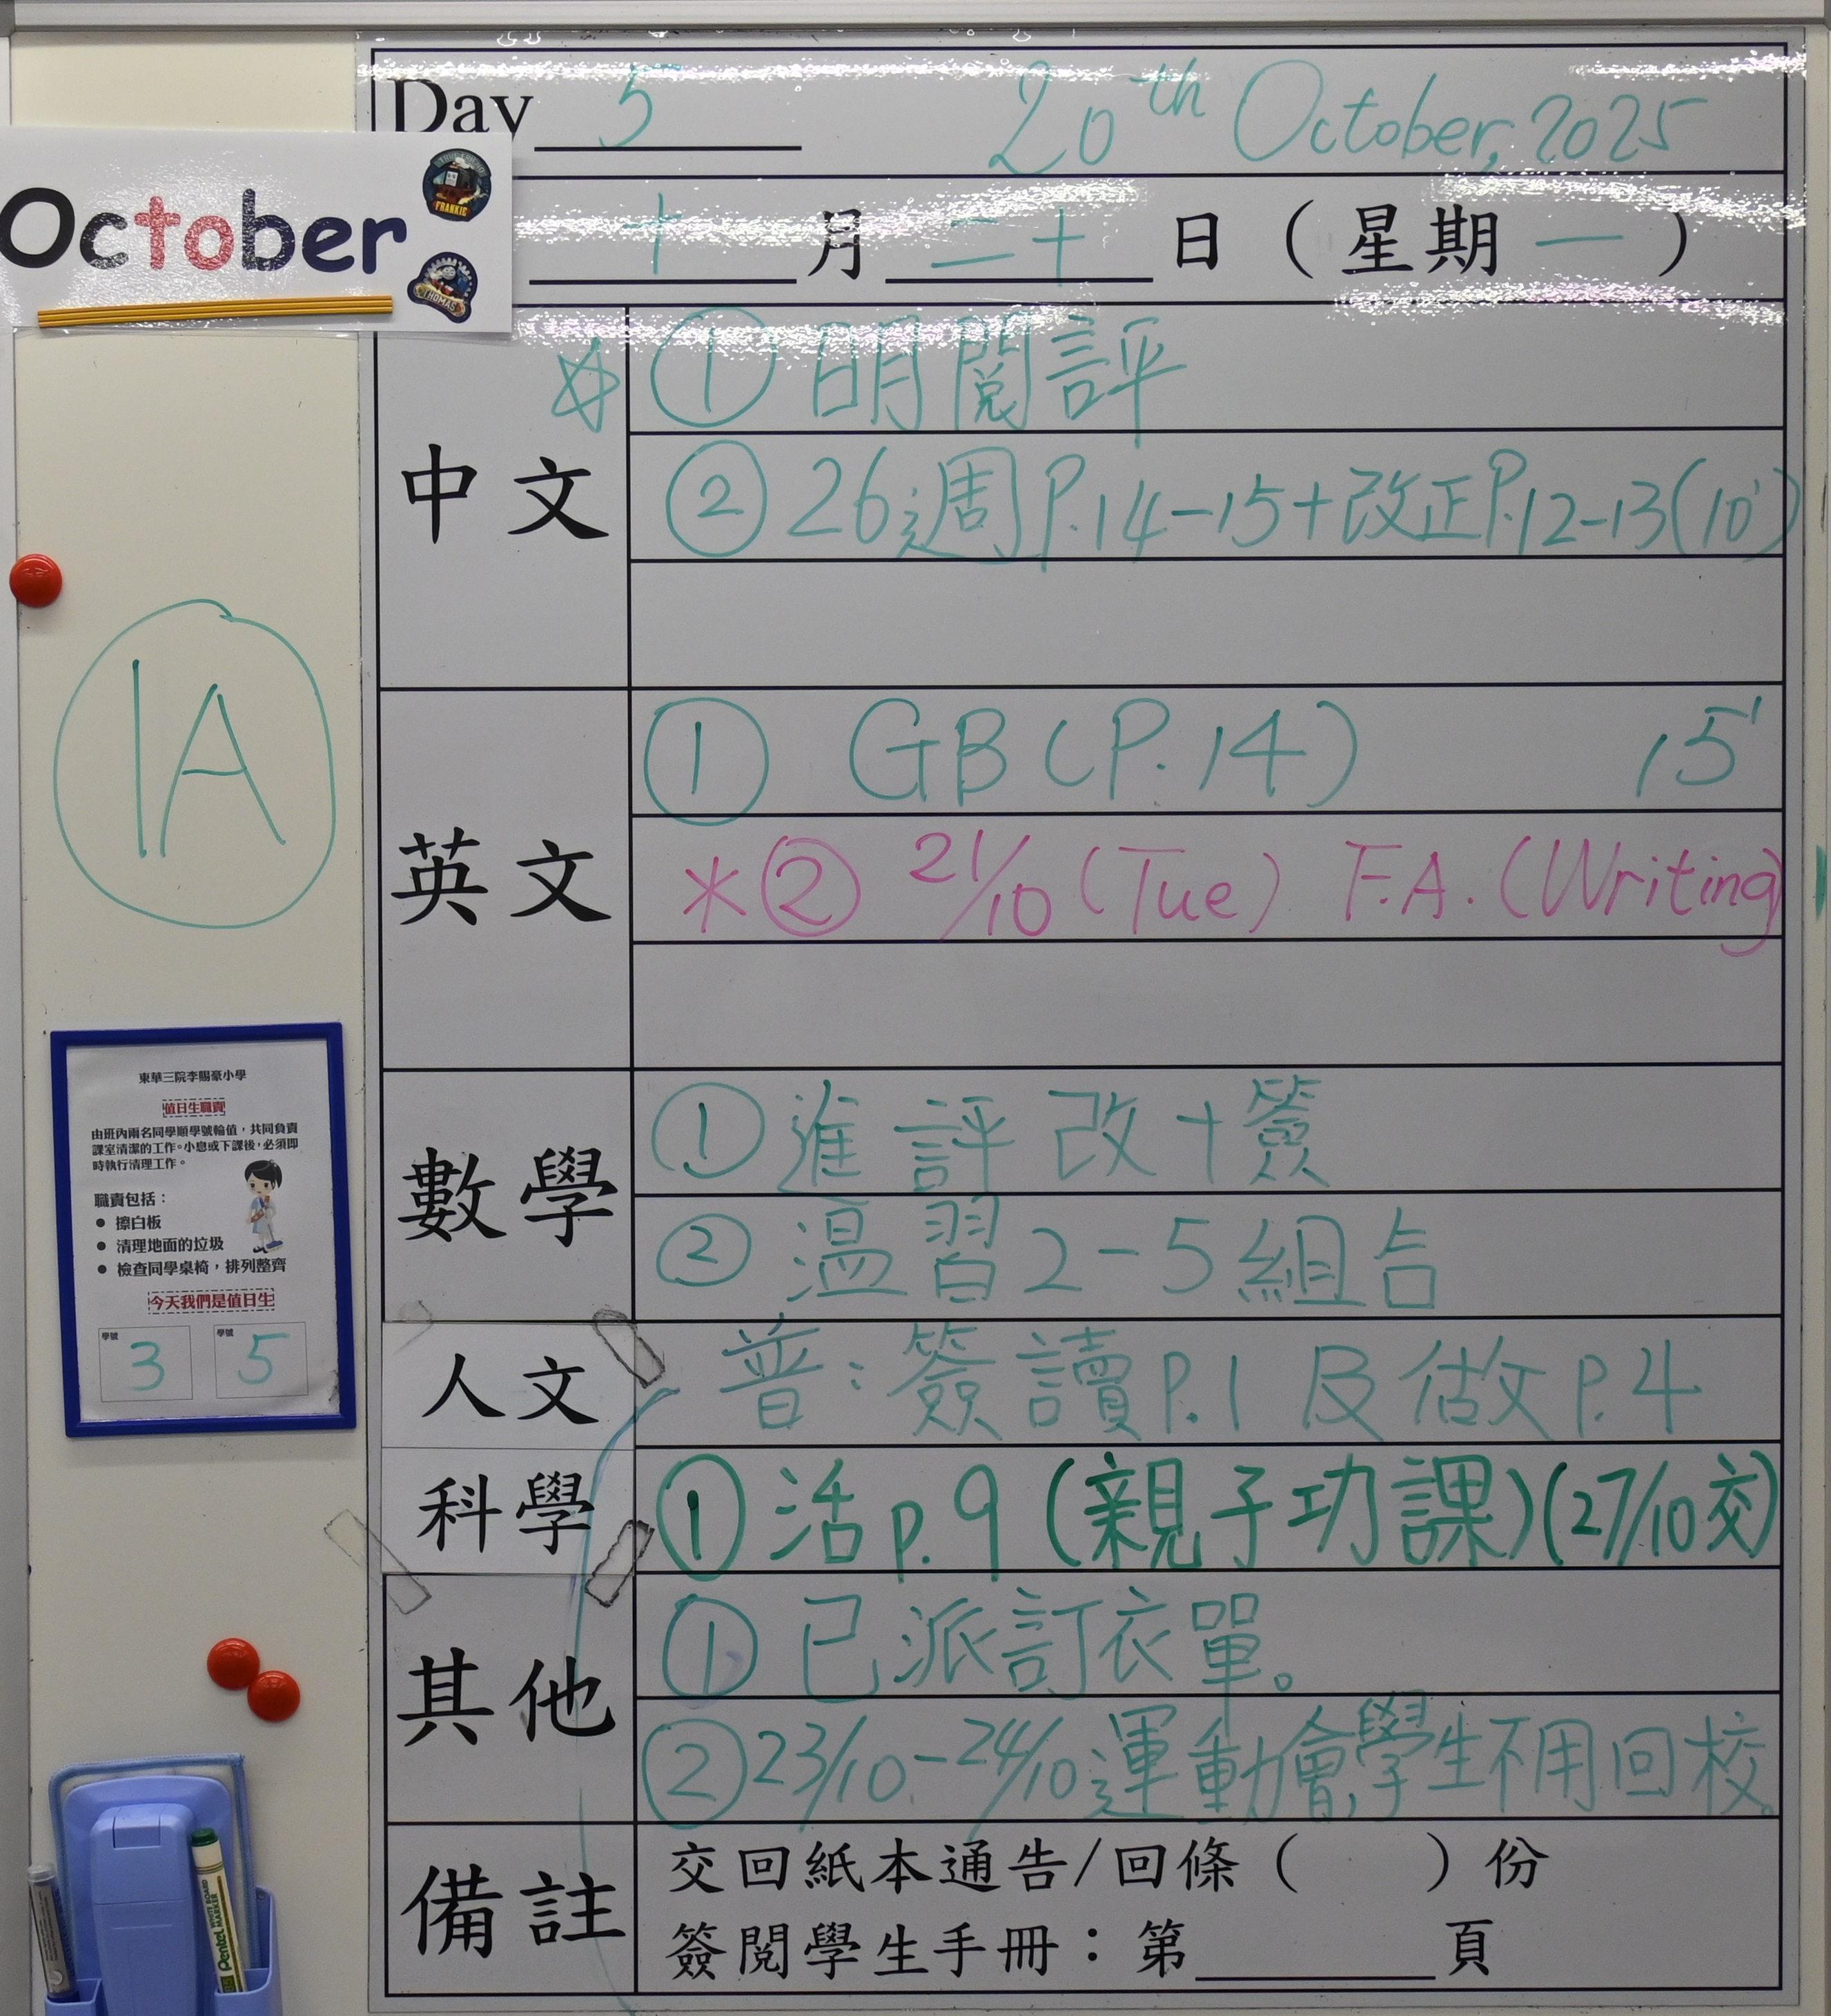 Day 5 20th October, 2025
October
FRANKIE
THOMAS
十月二十日（星期一）
中文
☆ ① 明閱評
② 26週 P.14-15+改正P.12-13(10')
1A
英文
① GB (P.14) 15'
*② 21/10 (Tue) F.A. (Writing)
數學
① 進評改+簽
② 溫習2-5組合
人文
普：簽讀P.1 及做P.4
科學
① 活p.9 (親子功課)(27/10交)
其他
① 已派訂衣單。
② 23/10-24/10運動會,學生不用回校。
備註
交回紙本通告/回條（ ）份
簽閱學生手冊：第______頁
東華三院李賜豪小學
值日生職責
由班內兩名同學順學號輪值，共同負責
課室清潔的工作。小息或下課後，必須即
時執行清理工作。
職責包括：
● 擦白板
● 清理地面的垃圾
● 檢查同學桌椅，排列整齊
今天我們是值日生
學號 3 學號 5
Pentel
WHITE BOARD MARKER